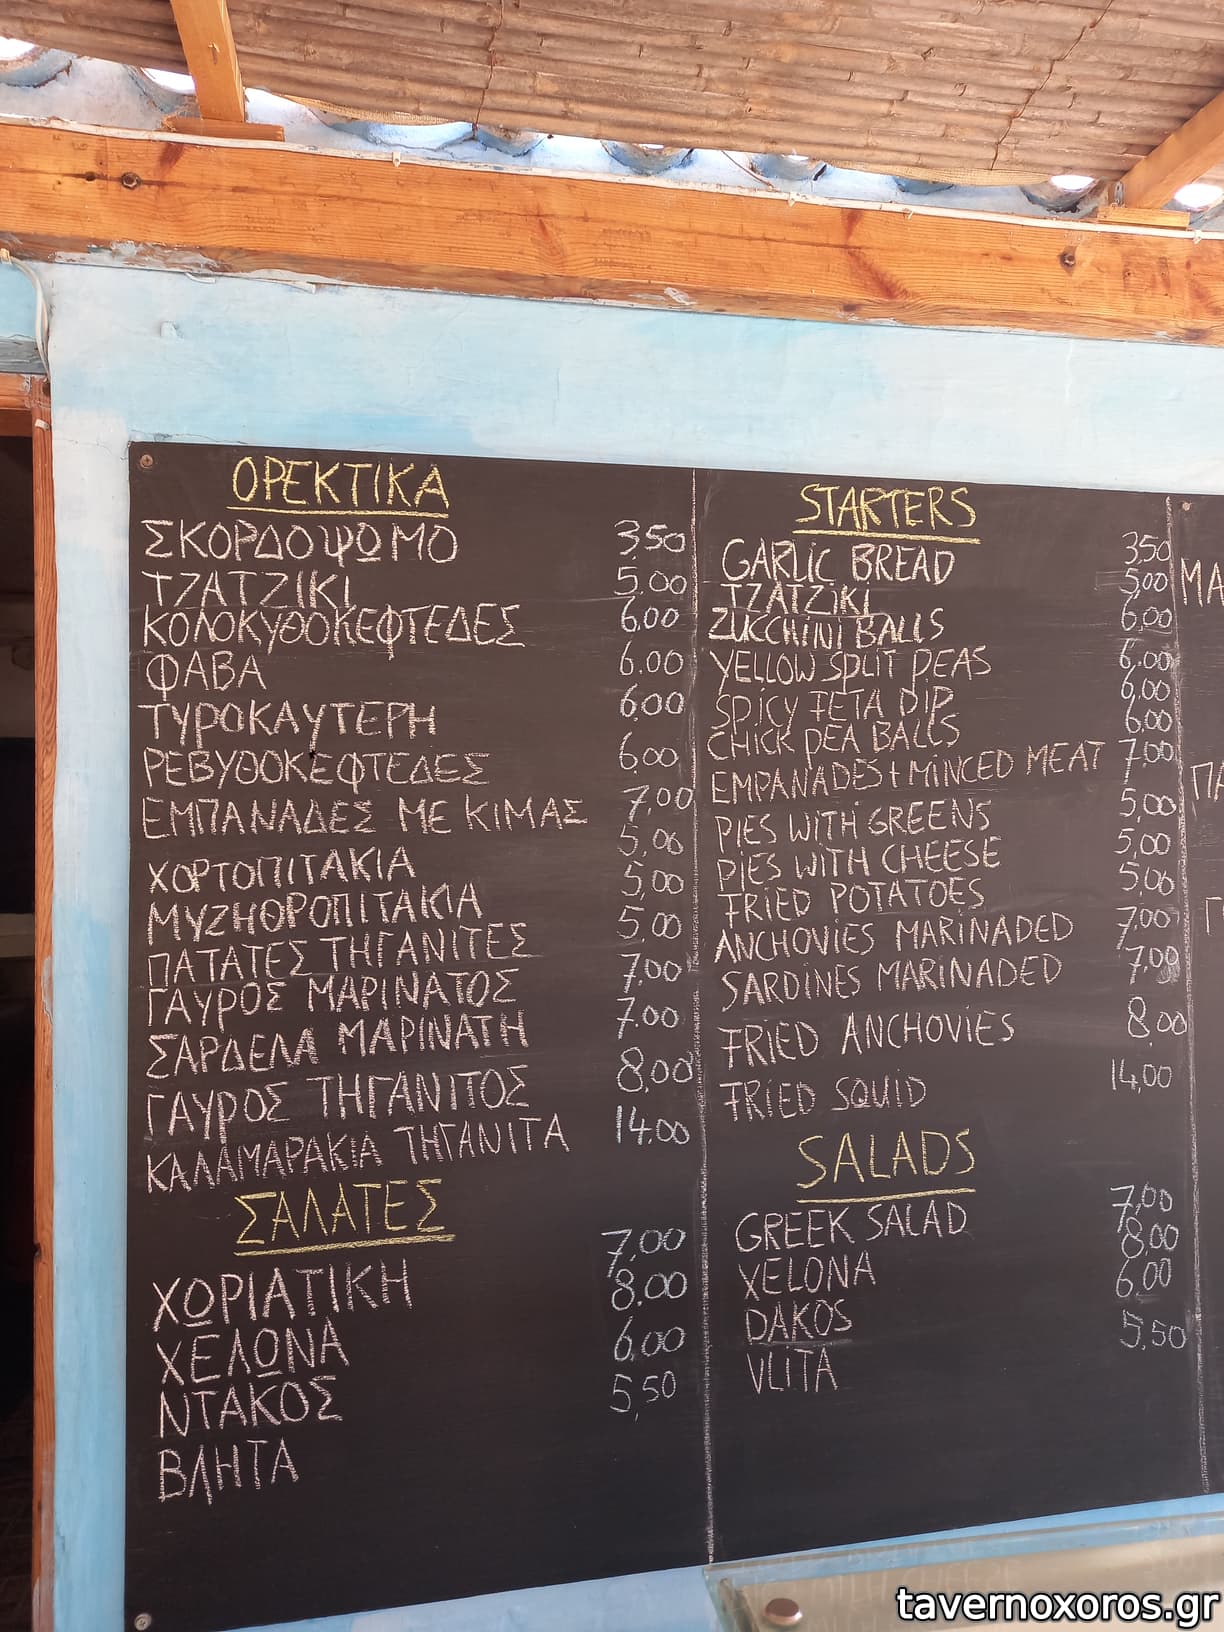 ΟΡΕΚΤΙΚΑ
ΣΚΟΡΔΟΨΩΜΟ 3.50
ΤΖΑΤΖΙΚΙ 5.00
ΚΟΛΟΚΥΘΟΚΕΦΤΕΔΕΣ 6.00
ΦΑΒΑ 6.00
ΤΥΡΟΚΑΥΤΕΡΗ 6.00
ΡΕΒΥΘΟΚΕΦΤΕΔΕΣ 6.00
ΕΜΠΑΝΑΔΕΣ ΜΕ ΚΙΜΑΣ 7,00
ΧΟΡΤΟΠΙΤΑΚΙΑ 5,00
ΜΥΖΗΘΡΟΠΙΤΑΚΙΑ 5,00
ΠΑΤΑΤΕΣ ΤΗΓΑΝΙΤΕΣ 5.00
ΓΑΥΡΟΣ ΜΑΡΙΝΑΤΟΣ 7,00
ΣΑΡΔΕΛΑ ΜΑΡΙΝΑΤΗ 7.00
ΓΑΥΡΟΣ ΤΗΓΑΝΙΤΟΣ 8,00
ΚΑΛΑΜΑΡΑΚΙΑ ΤΗΓΑΝΙΤΑ 14.00
ΣΑΛΑΤΕΣ
ΧΩΡΙΑΤΙΚΗ 7,00
ΧΕΛΩΝΑ 8.00
ΝΤΑΚΟΣ 6,00
ΒΛΗΤΑ 5,50
STARTERS
GARLIC BREAD 3.50
TZATZIKI 5,00
ZUCCHINI BALLS 6,00
YELLOW SPLIT PEAS 6.00
SPICY FETA DIP 6,00
CHICK PEA BALLS 6,00
EMPANADES + MINCED MEAT 7,00
PIES WITH GREENS 5,00
PIES WITH CHEESE 5,00
FRIED POTATOES 5,00
ANCHOVIES MARINADED 7,00
SARDINES MARINADED 7,00
FRIED ANCHOVIES 8,00
FRIED SQUID 14,00
SALADS
GREEK SALAD 7,00
XELONA 8,00
DAKOS 6.00
VLITA 5,50
ΜΑ
ΠΑ
tavernoxoros.gr